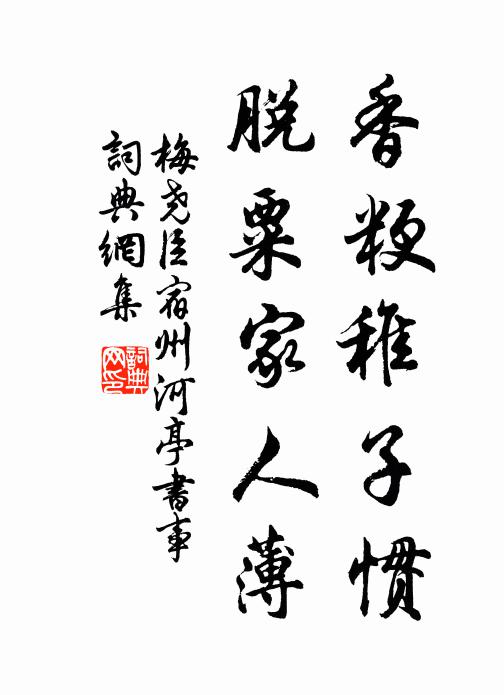 香粳稚子慣
脱粟家人薄
梅尧臣宿州河亭書事
詞典網集
詞典网印